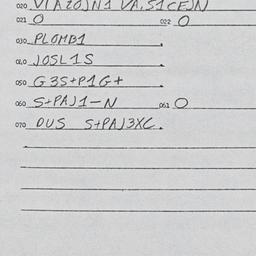 020 VIAZOJN1 VA,S1CEJN
021 O 022 O
030 PLOMB1
040 JOSL1S
050 G3S+P1G+
060 S+PAJ1-N 061 O
070 DUS S+PAJ3XC.